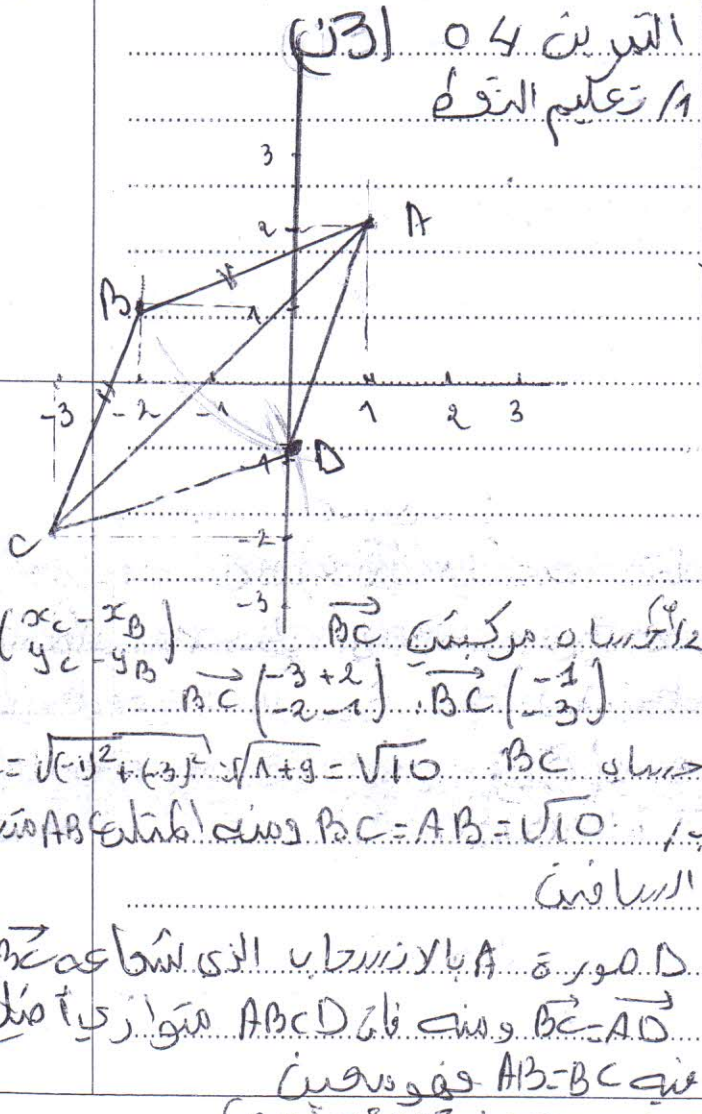 التمرين 04 (3ن)
1/ تعليم النقط
3
2 A
B 1
-3 -2 -1 1 2 3
-1 D
C -2
-3
2/أ/حساب مركبتي BC (xC - xB yC - yB)
BC (-3+2 -2-1) . BC (-1 -3)
حساب BC = √(-1)²+(-3)² = √1+9 = √10
ب/ BC=AB=√10 ومنه المثلث ABC
الساقين
D صورة A بالانسحاب الذي شعاعه BC
BC=AD ومنه فان ABCD متوازي أضلاع
AB=BC فهو معين